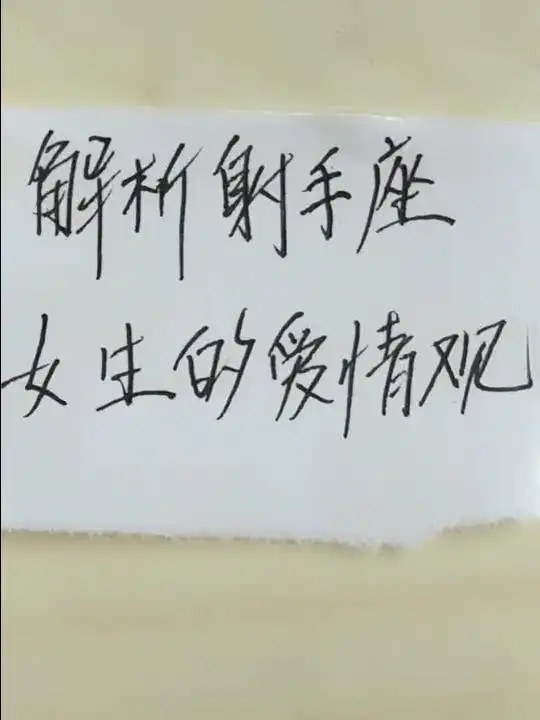 解析射手座
女生的爱情观